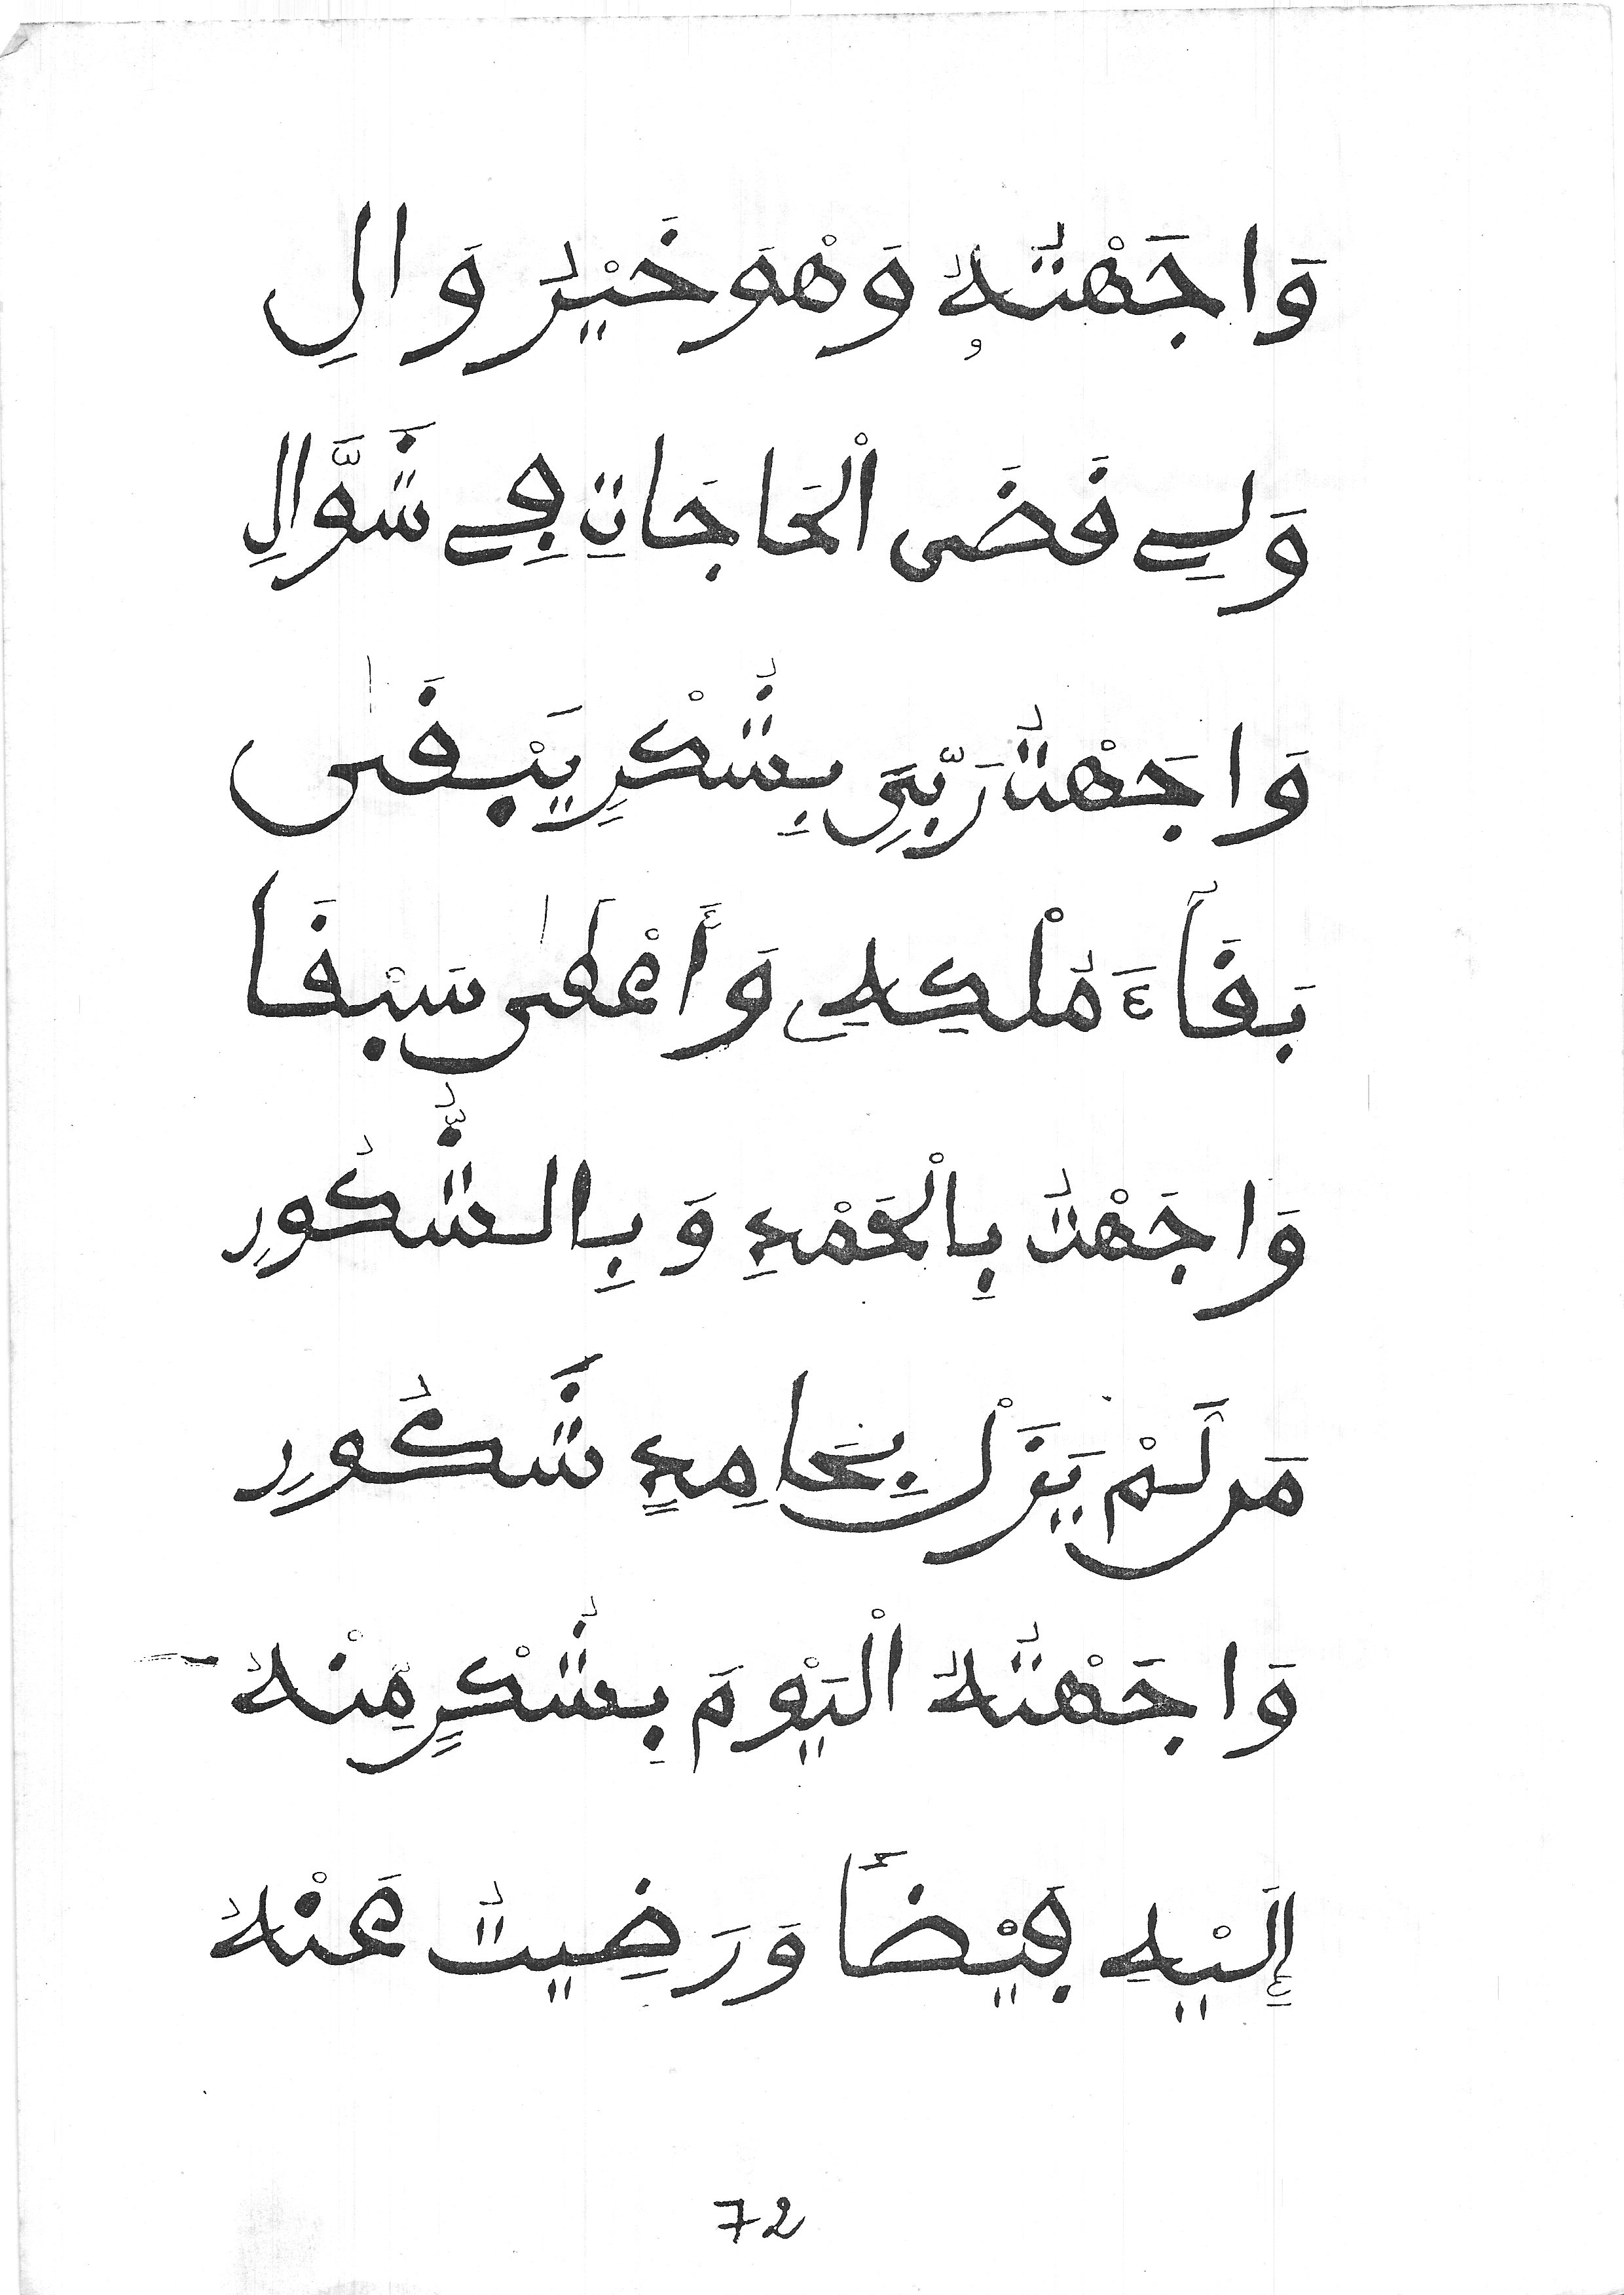 وَاجَهْتُهُ وَهْوَ خَيْرُ وَالِ
وَلِي قَضَى الْحَاجَاتِ فِي شَوَّالِ
وَاجَهْتُ رَبِّيَ بِشُكْرٍ يَبْقَىٰ
بَقَآءَ مُلْكِهِ وَأَعْطَىٰ سَبْقَا
وَاجَهْتُ بِالْحَمْدِ وَبِالشُّكُورِ
مَن لَمْ يَزَلْ بِحَامِدٍ شَكُورِ
وَاجَهْتُهُ الْيَوْمَ بِشُكْرٍ مِنْهُ
إِلَيْهِ فَيْضًا وَرَضِيتُ عَنْهُ
72